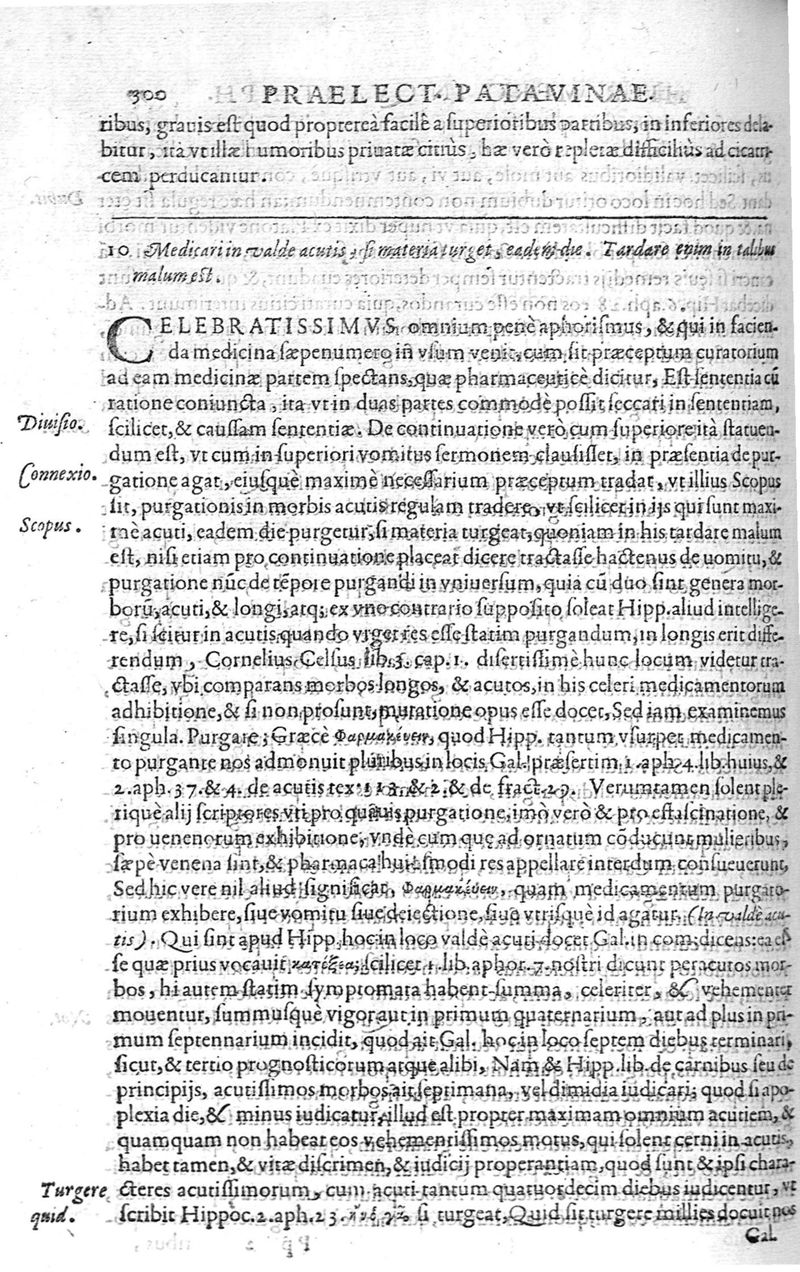 300 PRAELECT. PATAVINAE.
ribus, grauis est quod propterea facilè a superioribus partibus, in inferiores dela-
bitur, ita vt illæ humoribus priuatæ citius, hæ verò repletæ difficilius ad cicatri-
cem perducantur.
10. Medicari in valde acutis, si materia turget, eadem die. Tardare enim in talibus
malum est.
CELEBRATISSIMVS omnium penè aphorismus, & qui in facien-
da medicina sæpenumero in vsum venit, cum sit præceptum curatorium
ad eam medicinæ partem spectans, quæ pharmaceuticè dicitur, Est sententia cū
ratione coniuncta, ita vt in duas partes commodè possit seccari in sententiam,
Diuisio.
scilicet, & caussam sententiæ. De continuatione verò cum superiore ità statuen-
dum est, vt cum in superiori vomitus sermonem clausisset, in præsentia de pur-
Connexio.
gatione agat, eiusquè maximè necessarium præceptum tradat, vt illius Scopus
sit, purgationis in morbis acutis regulam tradere, vt scilicet in ijs qui sunt maxi-
Scopus.
mè acuti, eadem die purgetur, si materia turgeat, quoniam in his tardare malum
est, nisi etiam pro continuatione placeat dicere tractasse hactenus de uomitu, &
purgatione nūc de tēpore purgandi in vniuersum, quia cū duo sint genera mor-
borū, acuti, & longi, atq; ex vno contrario supposito soleat Hipp. aliud intellige-
re, si scitur in acutis quando vrget res esse statim purgandum, in longis erit diffe-
rendum, Cornelius Celsus lib. 3. cap. 1. disertissimè hunc locum videtur tra-
ctasse, vbi comparans morbos longos, & acutos, in his celeri medicamentorum
adhibitione, & si non prosunt, mutatione opus esse docet, Sed iam examinemus
singula. Purgare; Græcè Φαρμακέυειν, quod Hipp. tantum vsurpet medicamen-
to purgante nos admonuit pluribus in locis Gal. præsertim 1. aph. 4. lib. huius, &
2. aph. 37. & 4. de acutis tex. & 2. & de fract. 29. Verumtamen solent ple-
riquè alij scriptores vti pro quauis purgatione, imò verò & pro estascinatione, &
pro uenenorum exhibitione, vndè cum que ad ornatum cōducunt mulieribus,
sæpè venena sint, & pharmaca huiusmodi res appellare interdum consueuerunt,
Sed hic vere nil aliud significat, Φαρμακέυειν, quam medicamentum purgato-
rium exhibere, siue vomitu siue deiectione, siue vtrisquè id agatur. (In valdè acu-
tis). Qui sint apud Hipp. hoc in loco valdè acuti docet Gal. in com. dicens: ea es-
se quæ prius vocauit scilicet 1. lib. aphor. 7. nostri dicunt peracutos mor-
bos, hi autem statim symptomata habent summa, celeriter, & vehementer
mouentur, summusquè vigor aut in primum quaternarium, aut ad plus in pri-
mum septennarium incidit, quod ait Gal. hoc in loco septem diebus terminari,
sicut, & tertio prognosticorum atque alibi, Nam & Hipp. lib. de carnibus seu de
principijs, acutissimos morbos ait septimana, vel dimidia iudicari; quod si apo-
plexia die, & minus iudicatur, illud est propter maximam omnium acutiem, &
quamquam non habeat eos vehementissimos motus, qui solent cerni in acutis,
habet tamen, & vitæ discrimen, & iudicij properantiam, quod sunt & ipsi chara-
Turgere
cteres acutissimorum, cum acuti tantum quatuordecim diebus iudicentur, vt
quid.
scribit Hippoc. 2. aph. 23. si turgeat, Quid sit turgere millies docuit nos
Gal.